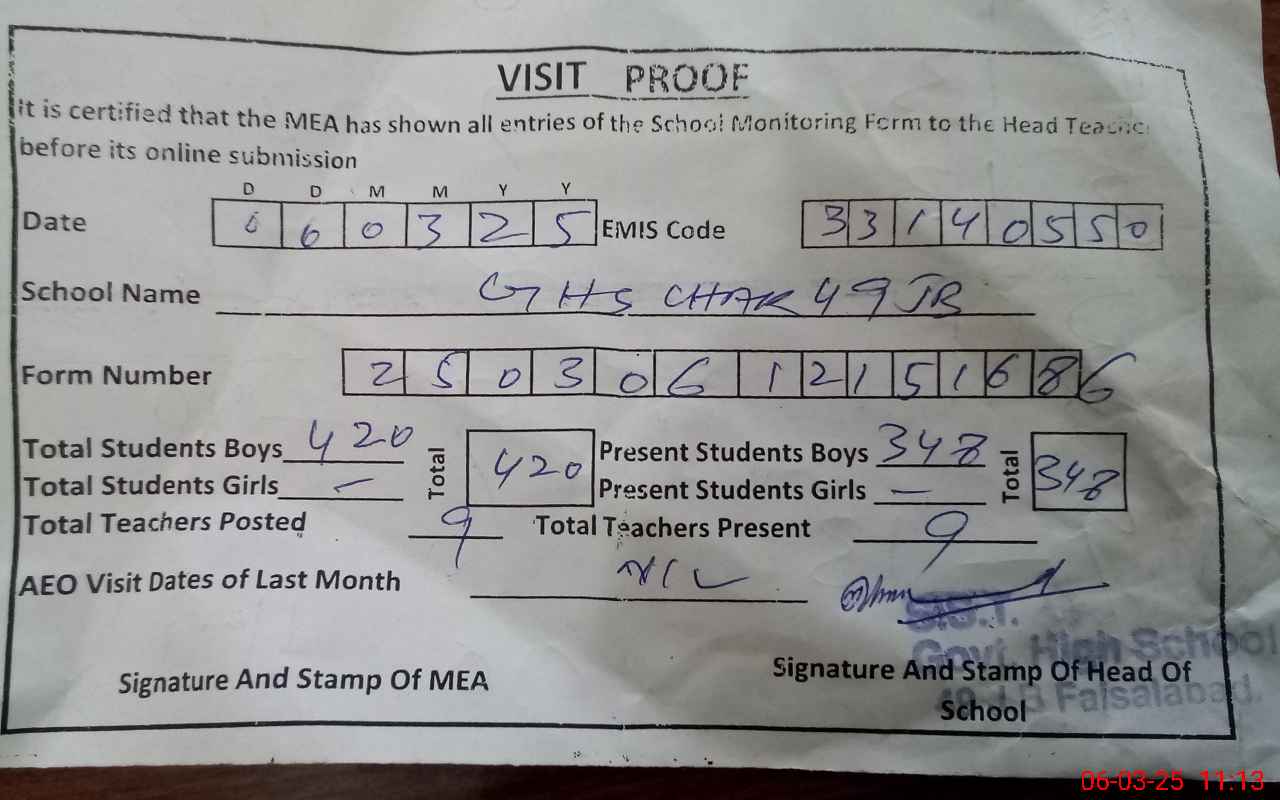 VISIT PROOF
It is certified that the MEA has shown all entries of the School Monitoring Form to the Head Teacher
before its online submission
D D M M Y Y
Date 0 6 0 3 2 5 EMIS Code 3 3 1 4 0 5 5 0
School Name GHS CHAK 49 JB
Form Number 2 5 0 3 0 6 1 2 1 5 1 6 8 6
Total Students Boys 420 Total 420 Present Students Boys 348 Total 348
Total Students Girls - Present Students Girls -
Total Teachers Posted 9 Total Teachers Present 9
AEO Visit Dates of Last Month NIL
S.S.T.
Govt. High School
Signature And Stamp Of MEA Signature And Stamp Of Head Of
School
49 JB Faisalabad.
06-03-25 11:13